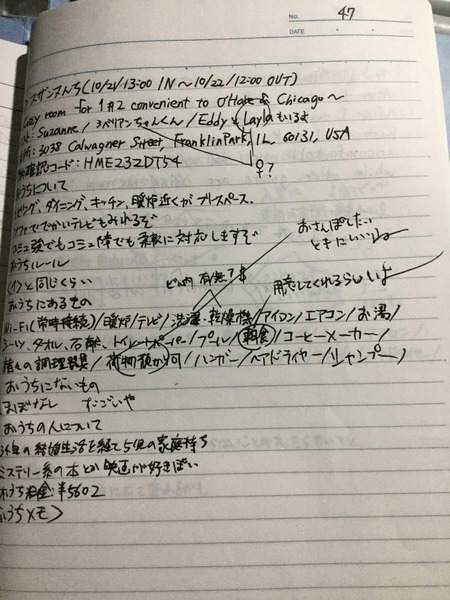 No. 47
DATE
スザンヌんち(10/21/13:00 IN～10/22/12:00 OUT)
Cozy room for 1 or 2 convenient to O'Hare & Chicago～
Suzanne/シベリアンちゃんくん/Eddy Laylaもいるよ
3038 Calwagner Street, Franklin Park, IL, 60131, USA
♀?
確認コード: HME232DT54
おうちについて
リビング、ダイニング、キッチン、暖炉近くがフリースペース。
ソファででかいテレビもみれるぞ
コミュ強でもコミュ障でも柔軟に対応しますぞ
おさんぽしたいときにいいね
おうちルール
(1)と同じくらい
有無? $
用意してくれるらしいよ
おうちにあるもの
Wi-Fi(常時接続)/暖炉/テレビ/洗濯・乾燥機/アイロン/エアコン/お湯/
シーツ、タオル、石鹸、トイレットペーパー/プール/朝食/コーヒーメーカー/
諸々の調理器具/荷物預かり可/ハンガー/ヘアドライヤー/シャンプー/
おうちにないもの
ほぼなし すごいや
おうちの人について
34年の結婚生活を経て5児の家庭持ち
ミステリー系の本とか映画が好きぽい
おうち料金: ¥5602
おうちメモ>